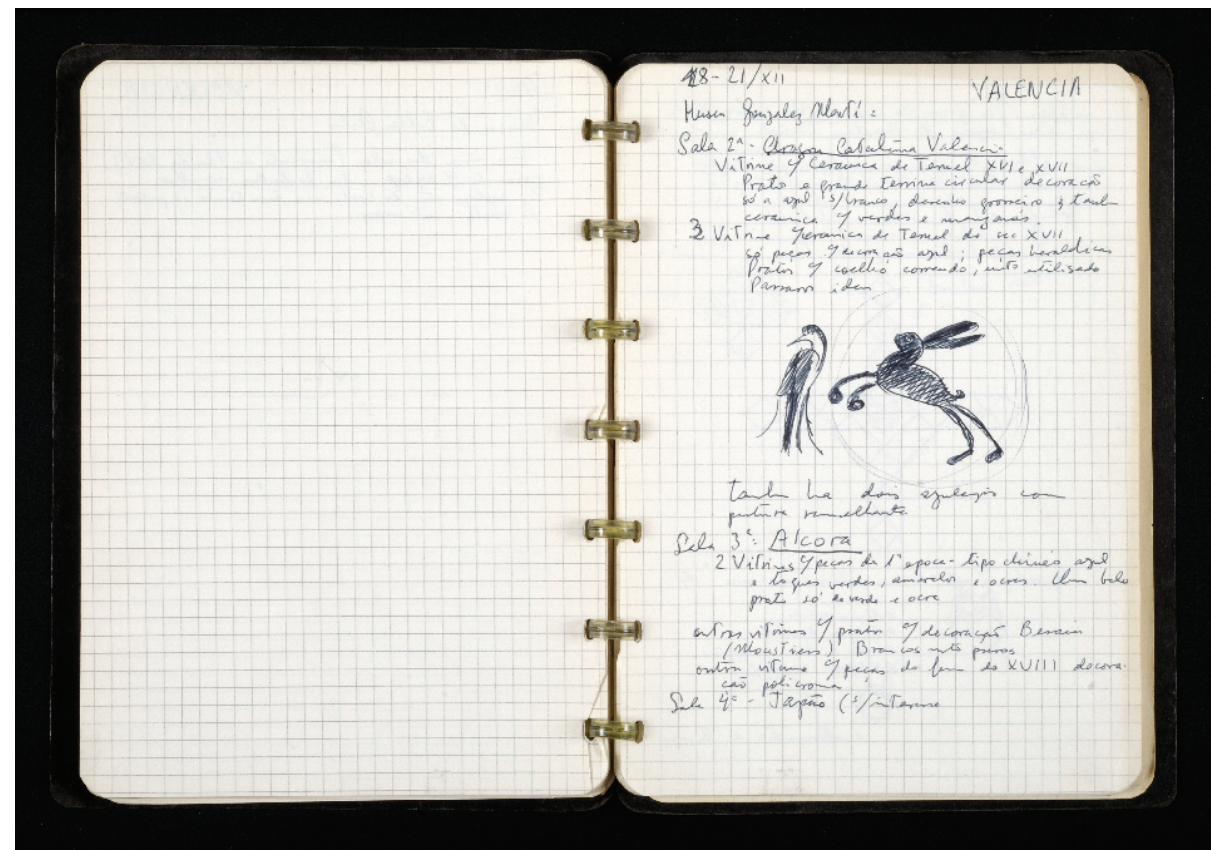 18-21/XII
VALENCIA
Museu Gonzalez Marti:
Sala 2ª - Catalunia Valencia
Vitrine c/ Ceramica de Teruel XVI e XVII
Prato e grande terrina circular decoração
só a azul s/branco, desenho grosseiro e tambem
ceramica c/ verdes e manganés.
3 Vitrine c/ceramica de Teruel do sec XVII
só peças c/decoração azul; peças heraldicas
Pratos c/ coelho correndo, mto utilisado
Passaros idem
tambem ha dois azulejos com
pintura semelhante
Sala 3ª: Alcora
2 Vitrines c/peças da 1ª epoca - tipo chinês azul
e toques verdes, amarelos e ocres. Um belo
prato só a verde e ocre
outras vitrines c/ pratos c/ decoração Berain
(Moustiers) Brancos mto puros
outra vitrine c/ peças do fim do XVIII decora-
ção policroma
Sala 4ª - Japão (s/interesse